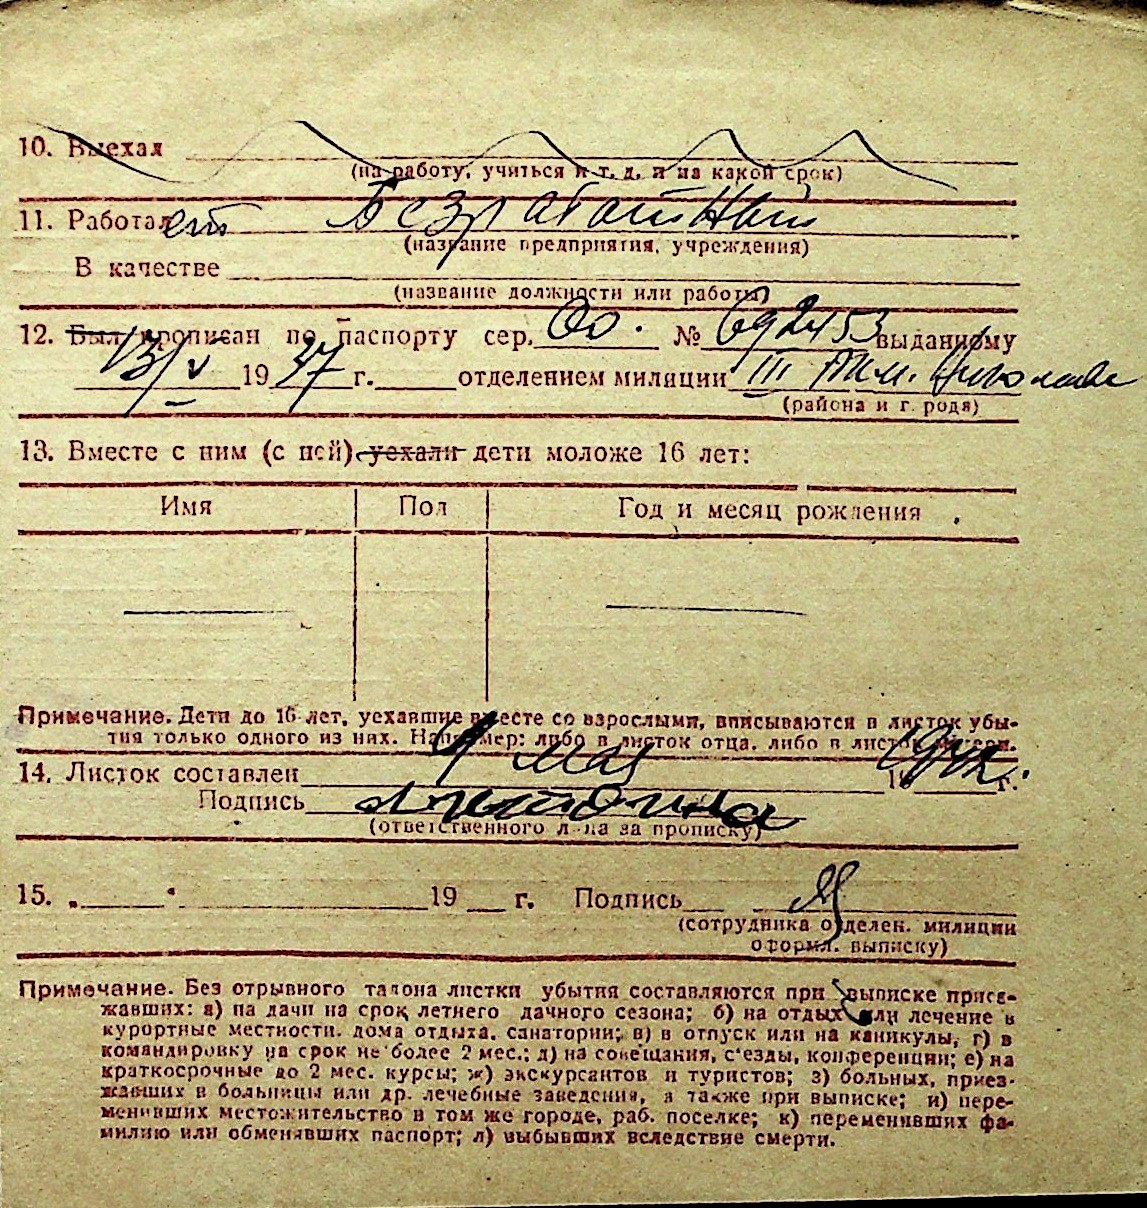 10. Выехал
(на работу, учиться и т. д. и на какой срок)
11. Работает Безработный
(название предприятия, учреждения)
В качестве
(название должности или работы)
12. Был прописан по паспорту сер. № 692453 выданному
13/V 1937 г. отделением милиции III
(района и г. рода)
13. Вместе с ним (с ней) уехали дети моложе 16 лет:
Имя Пол Год и месяц рождения
Примечание. Дети до 16 лет, уехавшие вместе со взрослыми, вписываются в листок убы-
тия только одного из них. Например: либо в листок отца, либо в листок матери.
14. Листок составлен 9 мая г.
Подпись
(ответственного л-ца за прописку)
15. „ “ 19 г. Подпись
(сотрудника отделен. милиции
оформл. выписку)
Примечание. Без отрывного талона листки убытия составляются при выписке приез-
жавших: а) на дачи на срок летнего дачного сезона; б) на отдых или лечение в
курортные местности, дома отдыха, санатории; в) в отпуск или на каникулы, г) в
командировку на срок не более 2 мес.; д) на совещания, съезды, конференции; е) на
краткосрочные до 2 мес. курсы; ж) экскурсантов и туристов; з) больных, приез-
жавших в больницы или др. лечебные заведения, а также при выписке; и) пере-
менивших местожительство в том же городе, раб. поселке; к) переменивших фа-
милию или обменявших паспорт; л) выбывших вследствие смерти.